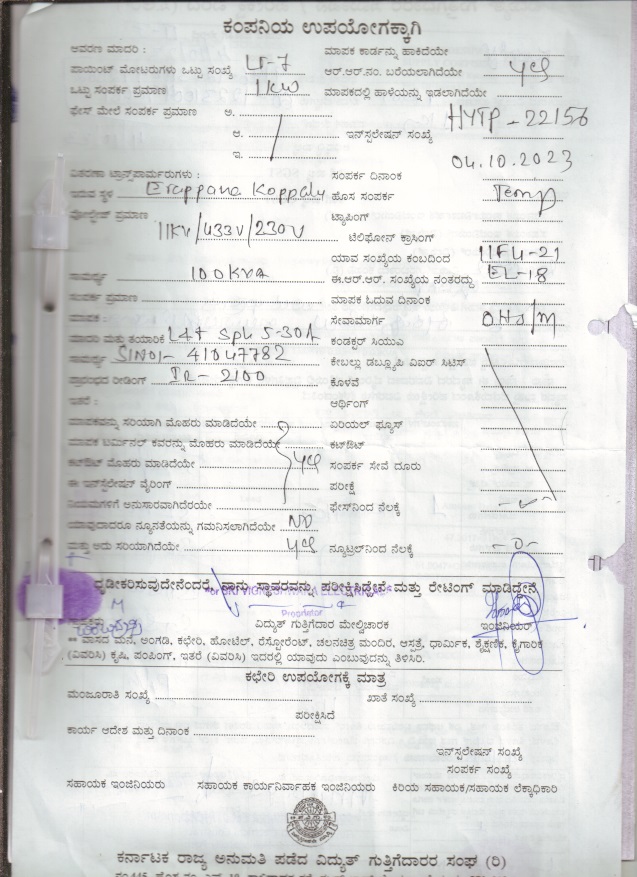 ಕಂಪನಿಯ ಉಪಯೋಗಕ್ಕಾಗಿ
ಆವರಣ ಮಾದರಿ : ಮಾಪಕ ಕಾರ್ಡನ್ನು ಹಾಕಿದೆಯೇ
ಪಾಯಿಂಟ್ ಮೋಟರುಗಳು ಒಟ್ಟು ಸಂಖ್ಯೆ LT-7 ಆರ್.ಆರ್.ನಂ. ಬರೆಯಲಾಗಿದೆಯೇ yes
ಒಟ್ಟು ಸಂಪರ್ಕ ಪ್ರಮಾಣ 1KW ಮಾಪಕದಲ್ಲಿ ಹಾಳೆಯನ್ನು ಇಡಲಾಗಿದೆಯೇ
ಫೇಸ್ ಮೇಲೆ ಸಂಪರ್ಕ ಪ್ರಮಾಣ ಅ.
HYTP-22156
ಆ. ಇನ್‌ಸ್ಟಲೇಷನ್ ಸಂಖ್ಯೆ
ಇ.
04.10.2023
ವಿತರಣಾ ಟ್ರಾನ್ಸ್‌ಫಾರ್ಮರುಗಳು : ಸಂಪರ್ಕ ದಿನಾಂಕ
ಇರುವ ಸ್ಥಳ Erappana Koppalu ಹೊಸ ಸಂಪರ್ಕ Temp
ವೋಲ್ಟೇಜ್ ಪ್ರಮಾಣ ಟ್ಯಾಪಿಂಗ್
11KV/433V/230V ಟೆಲಿಫೋನ್ ಕ್ರಾಸಿಂಗ್
ಯಾವ ಸಂಖ್ಯೆಯ ಕಂಬದಿಂದ 11F4-21
ಸಾಮರ್ಥ್ಯ 100KVA ಈ.ಆರ್.ಆರ್. ಸಂಖ್ಯೆಯ ನಂತರದ್ದು EL-18
ಸಂಪರ್ಕ ಪ್ರಮಾಣ ಮಾಪಕ ಓದುವ ದಿನಾಂಕ
ಮಾಪಕ : ಸೇವಾಮಾರ್ಗ OHS/M
ಮಾದರಿ ಮತ್ತು ತಯಾರಿಕೆ L&T Sph 5-30A ಕಂಡಕ್ಟರ್ ಸಿಯುಎ
ಸಾಮರ್ಥ್ಯ SlNo:- 41047782 ಕೇಬಲ್ಲು ಡಬ್ಲ್ಯೂಪಿ ವಿಐರ್ ಸಿಟಿಸ್
ಪ್ರಾರಂಭದ ರೀಡಿಂಗ್ IR-2100 ಕೊಳವೆ
ಇತರೆ : ಅರ್ಥಿಂಗ್
ಮಾಪಕವನ್ನು ಸರಿಯಾಗಿ ಮೊಹರು ಮಾಡಿದೆಯೇ ಏರಿಯಲ್ ಫ್ಯೂಸ್
ಮಾಪಕ ಟರ್ಮಿನಲ್ ಕವರನ್ನು ಮೊಹರು ಮಾಡಿದೆಯೇ ಕಟ್‌ಔಟ್
ಕಟ್‌ಔಟ್ ಮೊಹರು ಮಾಡಿದೆಯೇ yes ಸಂಪರ್ಕ ಸೇವೆ ದೂರು
ಈ ಇನ್‌ಸ್ಟಲೇಷನ್ ವೈರಿಂಗ್ ಪರೀಕ್ಷೆ
ನಿಯಮಗಳಿಗೆ ಅನುಸಾರವಾಗಿದೆರಯೇ ಫೇಸ್‌ನಿಂದ ನೆಲಕ್ಕೆ
ಯಾವುದಾದರೂ ನ್ಯೂನತೆಯನ್ನು ಗಮನಿಸಲಾಗಿದೆಯೇ NO
ಮತ್ತು ಅದು ಸರಿಯಾಗಿದೆಯೇ yes ನ್ಯೂಟ್ರಲ್‌ನಿಂದ ನೆಲಕ್ಕೆ -0-
ದೃಢೀಕರಿಸುವುದೇನೆಂದರೆ, ನಾನು ಸ್ಥಾವರವನ್ನು ಪರೀಕ್ಷಿಸಿದ್ದೇನೆ ಮತ್ತು ರೇಟಿಂಗ್ ಮಾಡಿದ್ದೇನೆ
Proprietor
ವಿದ್ಯುತ್ ಗುತ್ತಿಗೆದಾರ ಮೇಲ್ವಿಚಾರಕ ಇಂಜಿನಿಯರ್
** ವಾಸದ ಮನೆ, ಅಂಗಡಿ, ಕಛೇರಿ, ಹೋಟೆಲ್, ರೆಸ್ಟೋರೆಂಟ್, ಚಲನಚಿತ್ರ ಮಂದಿರ, ಆಸ್ಪತ್ರೆ, ಧಾರ್ಮಿಕ, ಶೈಕ್ಷಣಿಕ, ಕೈಗಾರಿಕ
(ವಿವರಿಸಿ) ಕೃಷಿ, ಪಂಪಿಂಗ್, ಇತರೆ (ವಿವರಿಸಿ) ಇದರಲ್ಲಿ ಯಾವುದು ಎಂಬುವುದನ್ನು ತಿಳಿಸಿರಿ.
ಕಛೇರಿ ಉಪಯೋಗಕ್ಕೆ ಮಾತ್ರ
ಮಂಜೂರಾತಿ ಸಂಖ್ಯೆ ಖಾತೆ ಸಂಖ್ಯೆ
ಪರೀಕ್ಷಿಸಿದೆ
ಕಾರ್ಯ ಆದೇಶ ಮತ್ತು ದಿನಾಂಕ
ಇನ್‌ಸ್ಟಲೇಷನ್ ಸಂಖ್ಯೆ
ಸಂಪರ್ಕ ಸಂಖ್ಯೆ
ಸಹಾಯಕ ಇಂಜಿನಿಯರು ಸಹಾಯಕ ಕಾರ್ಯನಿರ್ವಾಹಕ ಇಂಜಿನಿಯರು ಕಿರಿಯ ಸಹಾಯಕ/ಸಹಾಯಕ ಲೆಕ್ಕಾಧಿಕಾರಿ
ಕರ್ನಾಟಕ ರಾಜ್ಯ ಅನುಮತಿ ಪಡೆದ ವಿದ್ಯುತ್ ಗುತ್ತಿಗೆದಾರರ ಸಂಘ (ರಿ)